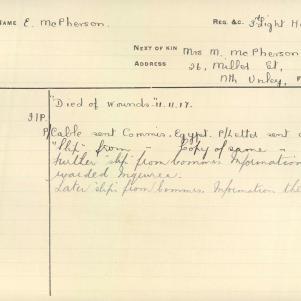 NAME E. McPherson. REG. &C. 3rd Light Ho
NEXT OF KIN Mrs M. McPherson
ADDRESS 26, Millet St,
Nth Unley,
"Died of Wounds" 11.11.17.
31P.
P/Cable sent Commis. Egypt. P/Letter sent
"slip" from " Copy of same "
Further "slip" from Commis. Information
warded Inquirer.
Later slip from Commis. Information the